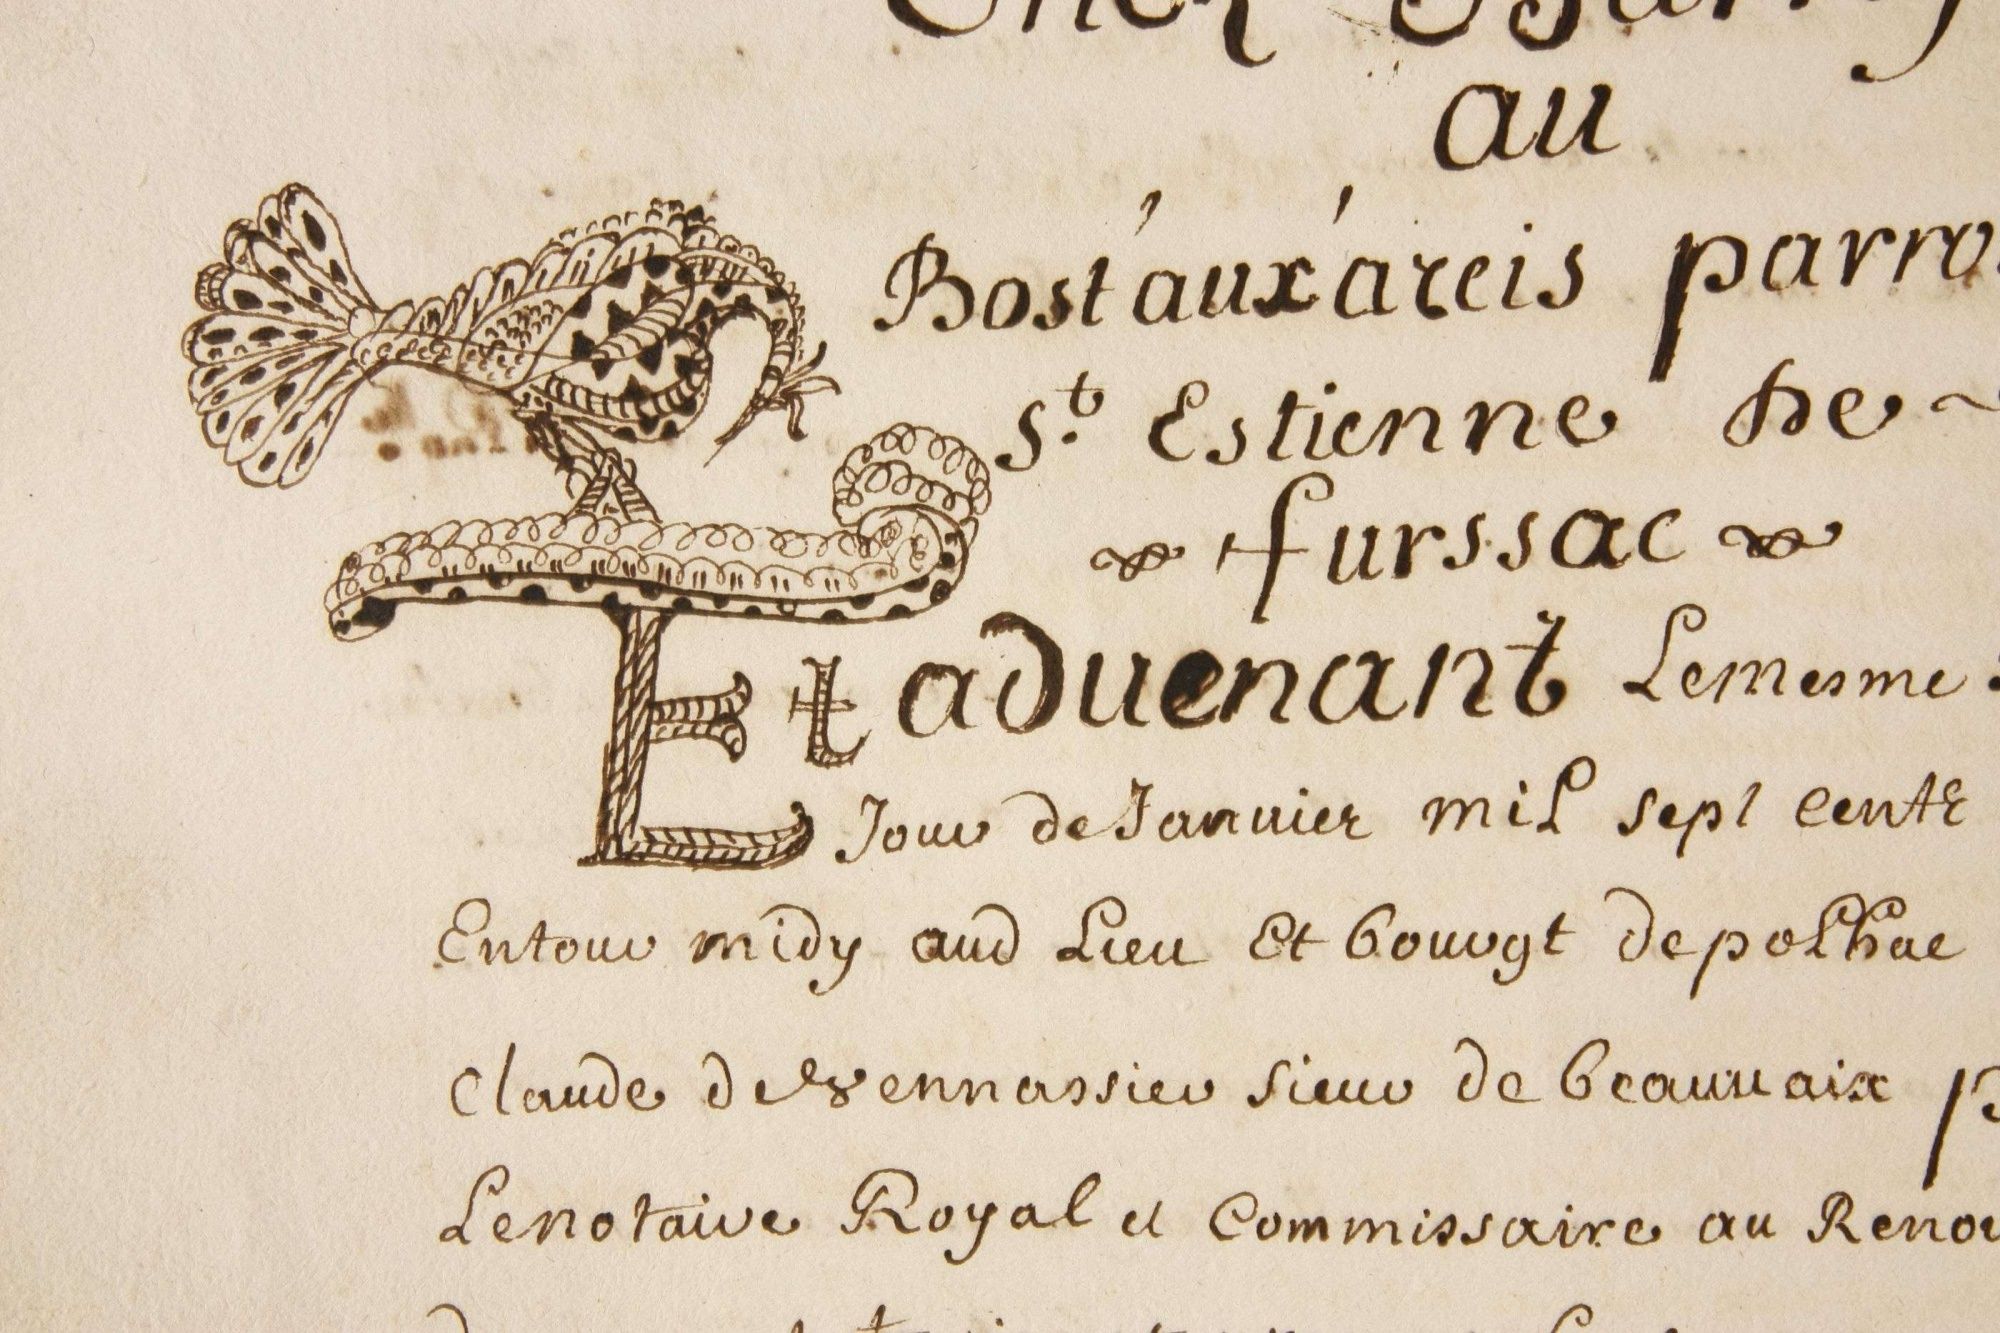 Chez Barry
au
Bost'aux'areis parro
S.t Estienne de ~
furssac
Et aduenant Lemesme
Jour de Januier mil sept cent
Entour midy aud Lieu Et bourgt de polhac
Claude de sieur de beauuaix
Lenotaire Royal et Commissaire au Renou